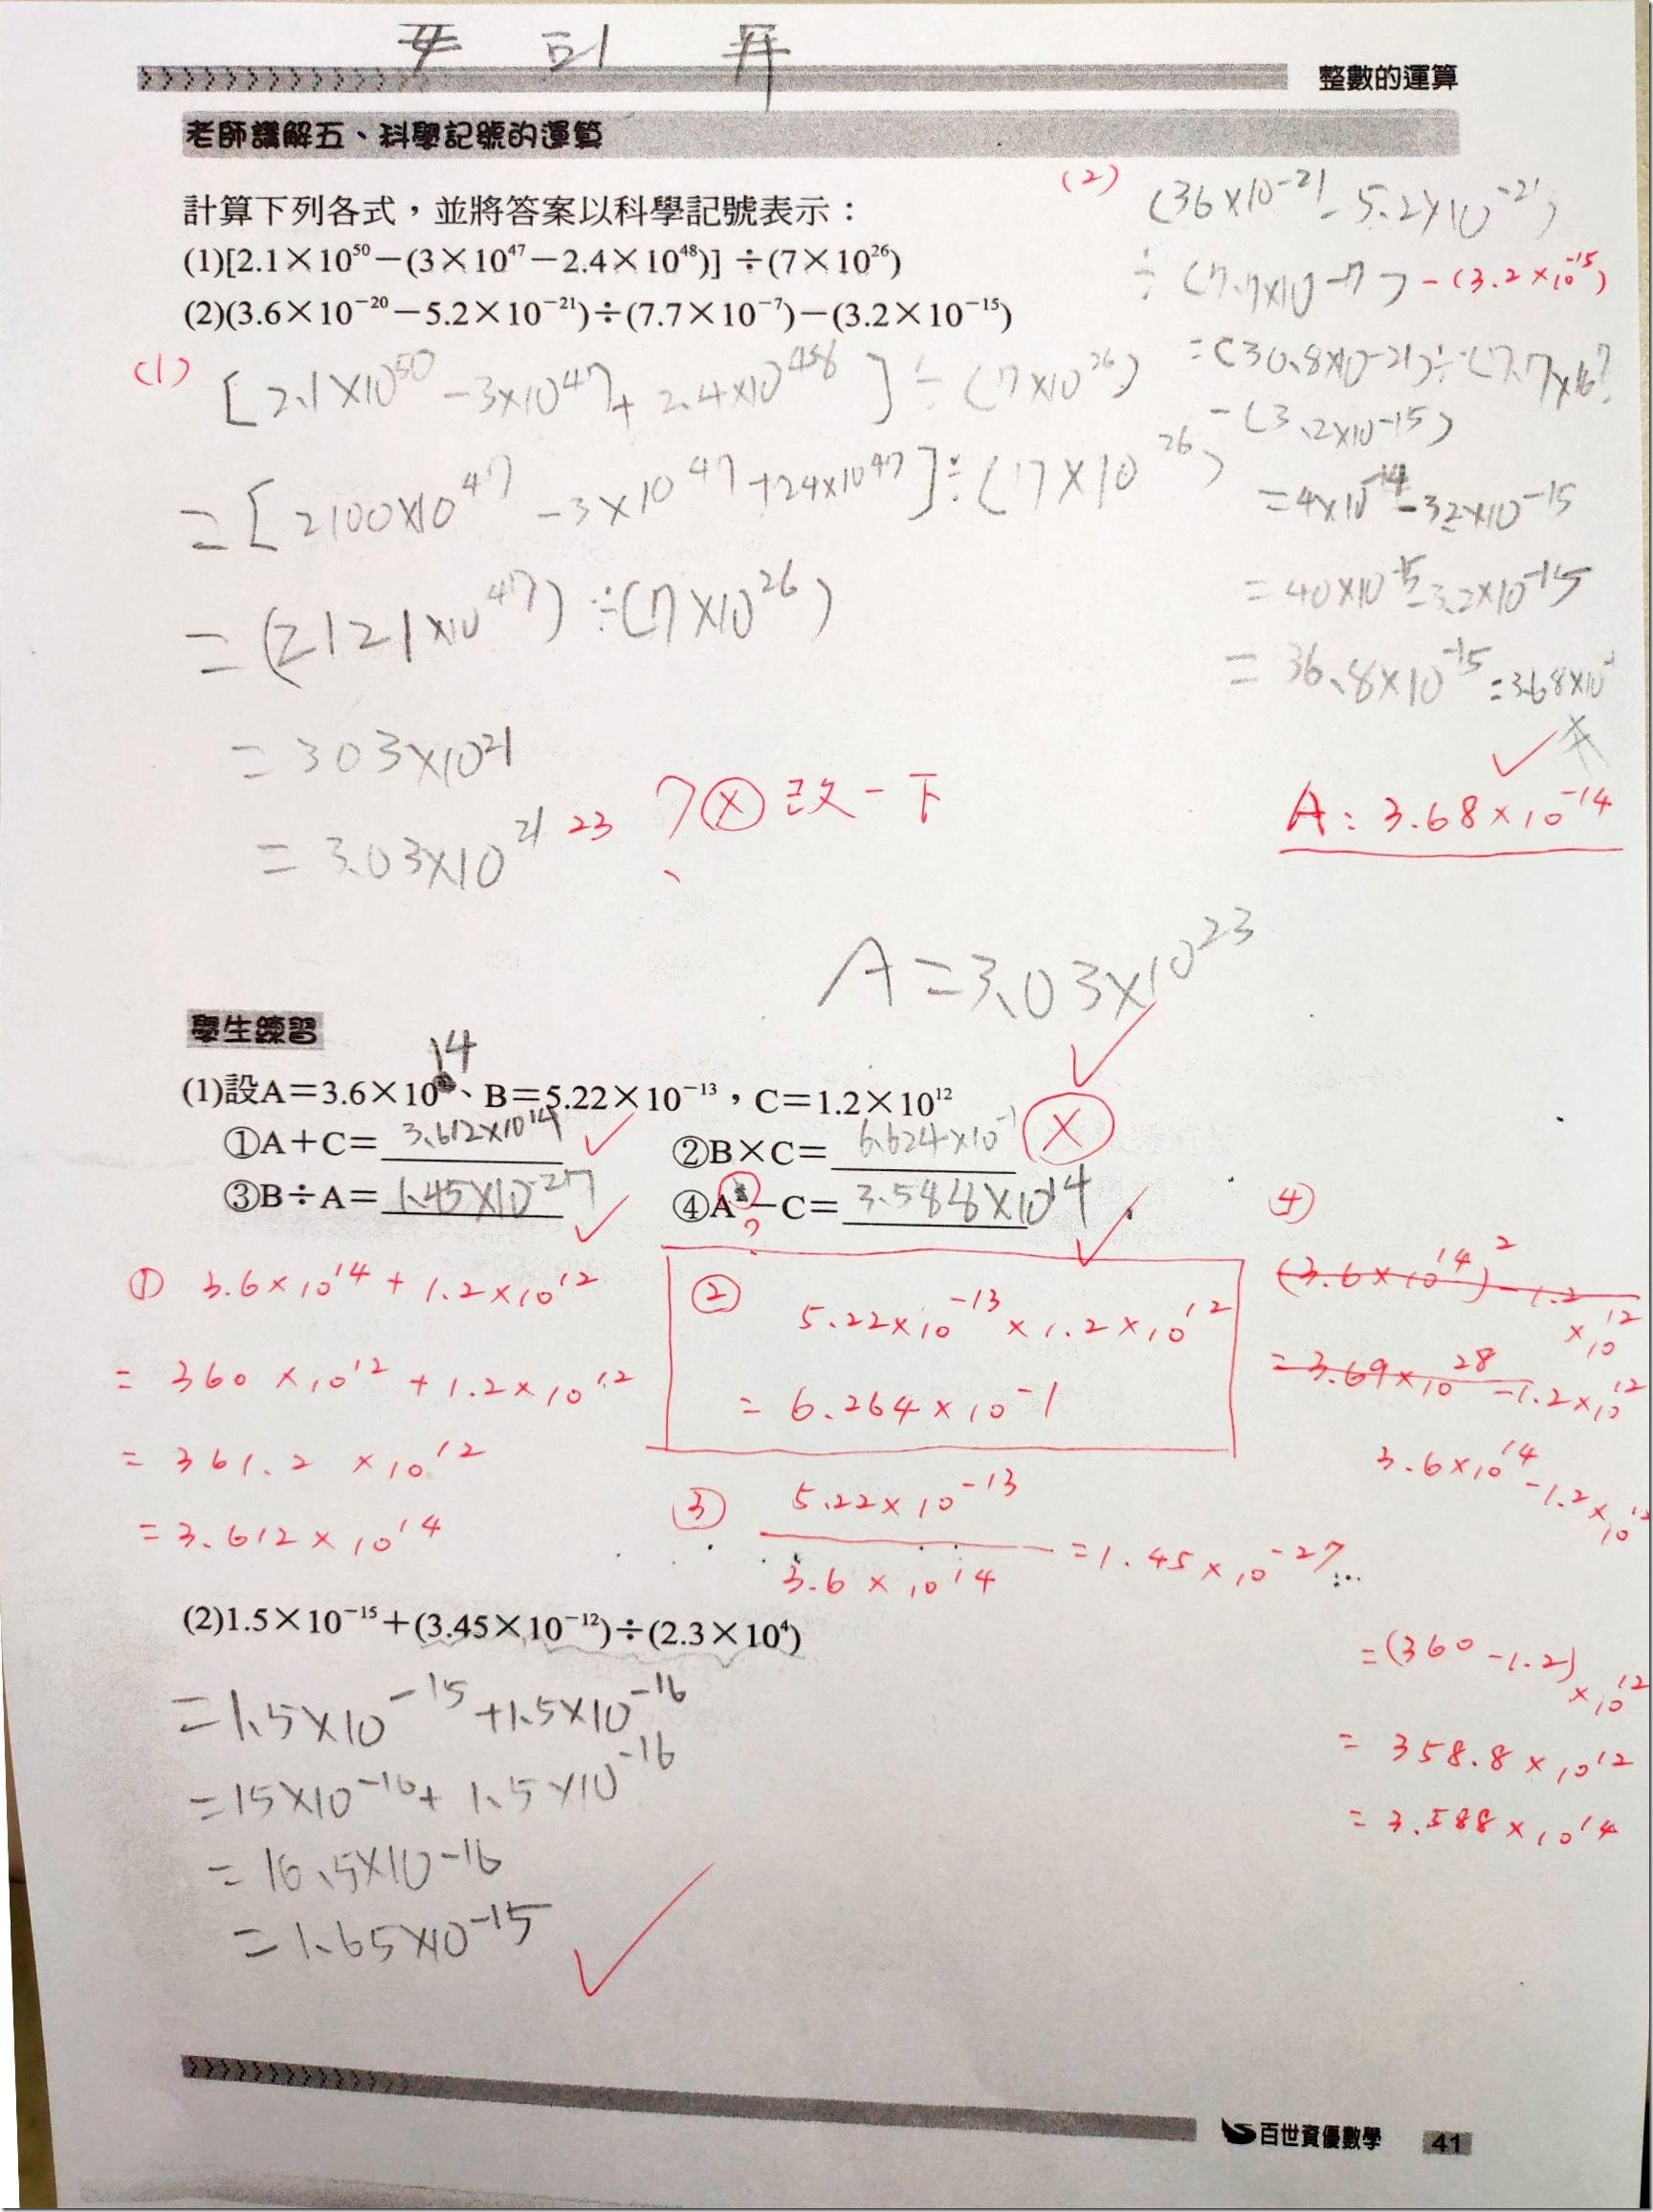 整數的運算
老師講解五、科學記號的運算
計算下列各式，並將答案以科學記號表示：
(1)[2.1×10⁵⁰－(3×10⁴⁷－2.4×10⁴⁸)] ÷(7×10²⁶)
(2)(3.6×10⁻²⁰－5.2×10⁻²¹)÷(7.7×10⁻⁷)－(3.2×10⁻¹⁵)
(1) [2.1×10⁵⁰ - 3×10⁴⁷ + 2.4×10⁴⁸] ÷ (7×10²⁶)
= [2100×10⁴⁷ - 3×10⁴⁷ + 24×10⁴⁷] ÷ (7×10²⁶)
= (2121×10⁴⁷) ÷ (7×10²⁶)
= 303×10²¹
= 3.03×10²¹ 23 ? ⓧ 改一下
A = 3.03×10²³
(2) (36×10⁻²¹ - 5.2×10⁻²¹)
÷ (7.7×10⁻⁷) - (3.2×10⁻¹⁵)
= (30.8×10⁻²¹) ÷ (7.7×10⁻⁷)
- (3.2×10⁻¹⁵)
= 4×10⁻¹⁴ - 3.2×10⁻¹⁵
= 40×10⁻¹⁵ - 3.2×10⁻¹⁵
= 36.8×10⁻¹⁵ = 3.68×10⁻¹
A: 3.68×10⁻¹⁴
學生練習
(1)設A＝3.6×10¹⁴、B＝5.22×10⁻¹³，C＝1.2×10¹²
①A＋C＝ 3.612×10¹⁴ ②B×C＝ 6.624×10⁻¹ ⓧ
③B÷A＝ 1.45×10⁻²⁷ ④A－C＝ 3.588×10¹⁴
?
① 3.6×10¹⁴ + 1.2×10¹²
= 360×10¹² + 1.2×10¹²
= 361.2×10¹²
= 3.612×10¹⁴
② 5.22×10⁻¹³ × 1.2×10¹²
= 6.264×10⁻¹
③ 5.22×10⁻¹³
3.6×10¹⁴ = 1.45×10⁻²⁷
④
(3.6×10¹⁴)² - 1.2×10¹²
= 3.69×10²⁸ - 1.2×10¹²
3.6×10¹⁴ - 1.2×10¹²
= (360 - 1.2)×10¹²
= 358.8×10¹²
= 3.588×10¹⁴
(2)1.5×10⁻¹⁵＋(3.45×10⁻¹²)÷(2.3×10⁴)
= 1.5×10⁻¹⁵ + 1.5×10⁻¹⁶
= 15×10⁻¹⁶ + 1.5×10⁻¹⁶
= 16.5×10⁻¹⁶
= 1.65×10⁻¹⁵
百世資優數學 41